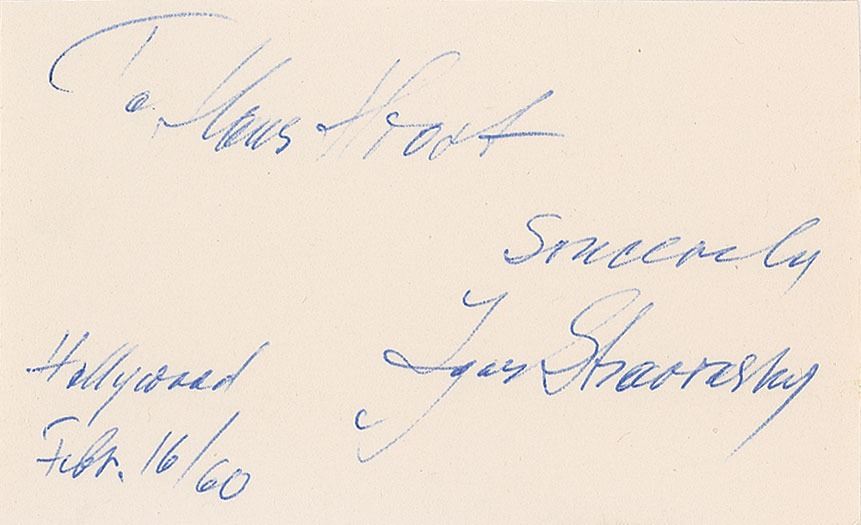 To Hans
Sincerely
Igor Stravinsky
Hollywood
Febr. 16/60